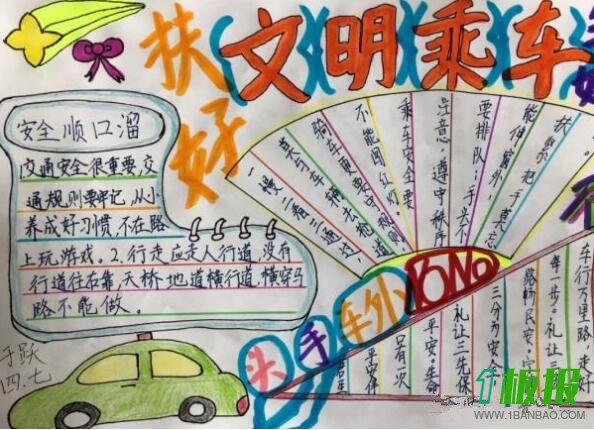 文明乘车
扶好
安全顺口溜
交通安全很重要,交
通规则要牢记,从小
养成好习惯,不在路
上玩游戏。2.行走应走人行道,没有
行道往右靠,天桥地道横行道,横穿马
路不能做。
一慢二看三通过,
莫与车辆去抢道
骑车更要守规则
不能闯红灯
乘车安全要
注意。遵守秩序
要排队;手头不
能伸窗外,
扶紧把手莫
头手车外No
只有一次
平安生命
礼让三先保
三分为安
每一步。礼让
车行万里路,走好
于跃
四.七
1板报
WWW.1BANBAO.COM